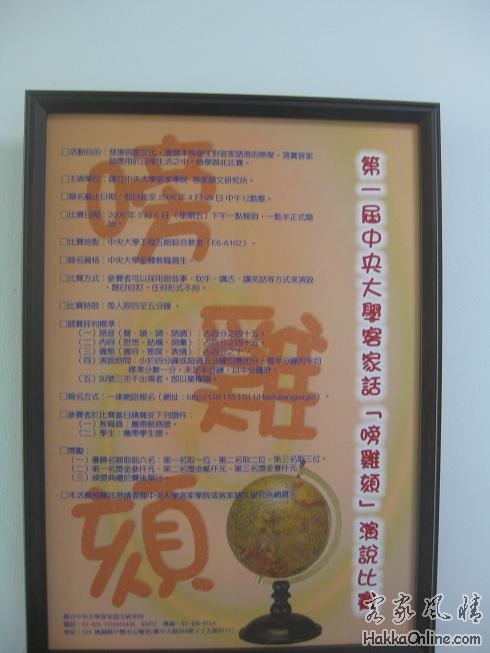 第一屆中央大學客家話「嗙雞頦」演說比賽
嗙
雞
頦
□活動目的：發揚客家文化，激發本校學生對客家語言的熱愛，落實客家
話應用於日常生活之中，特舉辦此比賽。
□主辦單位：國立中央大學客家學院 客家語文研究所。
□報名截止日期：即日起至 2005 年 4 月 29 日 中午12點整。
□比賽日期：2005 年 5 月 6 日（星期五）下午一點報到，一點半正式開
始。
□比賽地點：中央大學工程五館綜合教室（E6-A102）。
□報名資格：中央大學全體教職員生。
□比賽方式：參賽者可以採用說故事、吹牛、講古、講笑話等方式來演說
題目自訂，任何形式不拘。
□比賽時限：每人限四至五分鐘。
□競賽評判標準：
（一）語音（聲、韻、調、語調）：占百分之四十五。
（二）內容（思想、結構、詞彙）：占百分之四十五。
（三）儀態（儀容、態度、表情）：占百分之十。
（四）演說時間：少於四分鐘或超過五分鐘均應扣分，每半分鐘扣平均
標準分數一分，未足半分鐘，以半分鐘計。
（五）叫號三次不出場者，即以棄權論。
□報名方式：一律網路報名（網址：http://140.115.170.1/Hakkalanguage/）。
□參賽者於比賽當日請攜妥下列證件：
（一）教職員：攜帶服務證。
（二）學生：攜帶學生證。
□獎勵：
（一）優勝名額取前六名：第一名取一位、第二名取二位、第三名取三位。
（二）第一名獎金參仟元、第二名獎金貳仟元、第三名獎金壹仟元。
（三）頒獎典禮於賽後舉行。
□本活動相關訊息請查閱中央大學客家學院或客家語文研究所網頁。
國立中央大學客家語文研究所
客家風情
HakkaOnline.com